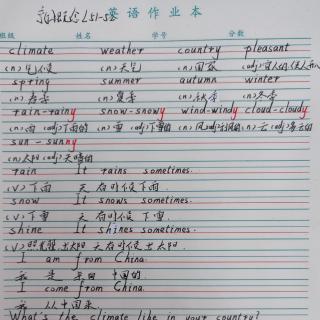 新概念L51-52
英语作业本
班级 姓名 学号 分数
climate weather country pleasant
(n)气候 (n)天气 (n)国家 (adj)宜人的
spring summer autumn winter
(n)春季 (n)夏季 (n)秋季 (n)冬季
rain-rainy snow-snowy wind-windy cloud-cloudy
(n)雨 (adj)下雨的 (n)雪 (adj)下雪的 (n)风 (n)云
sun-sunny
(n)太阳 (adj)天晴的
rain It rains sometimes.
(v)下雨 天有时候下雨.
snow It snows sometimes.
(v)下雪 天有时候下雪.
shine It shines sometimes.
(v)照耀 出太阳 天有时候出太阳.
I am from China.
我是来自中国的.
I come from China.
我从中国来.
What's the climate like in your country?